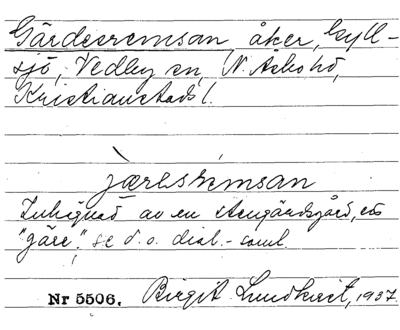 Gärdesremsan, åker, Gyll-
sjö, Vedby sn, N. Åsbo hd,
Kristianstads l.
jæ̀rəsrémsan
Inhägnad av en stengärdsgård, en
"gäre", se d. o. dial.-saml.
Nr 5506. Birgit Lundkvist, 1937.